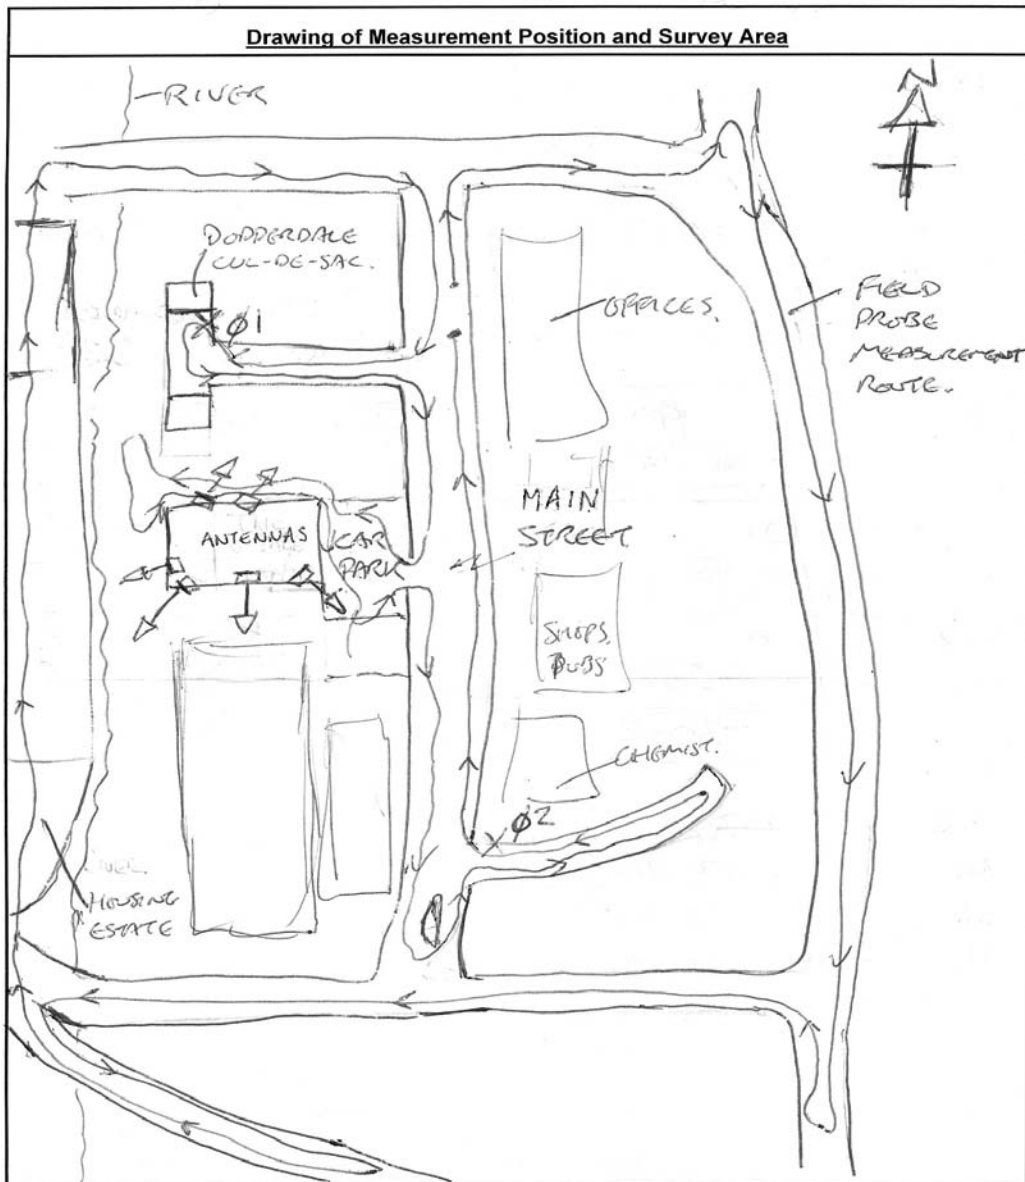 Drawing of Measurement Position and Survey Area
RIVER
N
DODDERDALE
CUL-DE-SAC.
Ø1
OFFICES.
FIELD
PROBE
MEASUREMENT
ROUTE.
MAIN
STREET
ANTENNAS
CAR
PARK
SHOPS
PUBS
CHEMIST.
Ø2
HOUSING
ESTATE